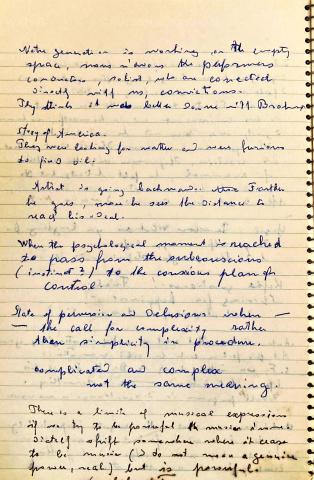 Notre generation is working on the empty
space, nous n'avons the performers
conductors, solist, who are conected
directly with us, convictions.
They think it was better done with Brahms
Story of America.
They were looking for water and were furious
to find oil.
Artist is going backward. Farther
he goes, more he sees the distance to
reach his ideal.
When the psychological moment is reached
to pass from the subconscious
(instinct?) to the consious plan of
control
State of permission and delusions when
the call for complexity rather
than simplicity in procedure.
complicated and complex
not the same meaning.
There is a limite of musical expression
if we try to be powerful the music
shift somewhere where it cease
to be music (I do not mean a genuine
power, real) but is powerful